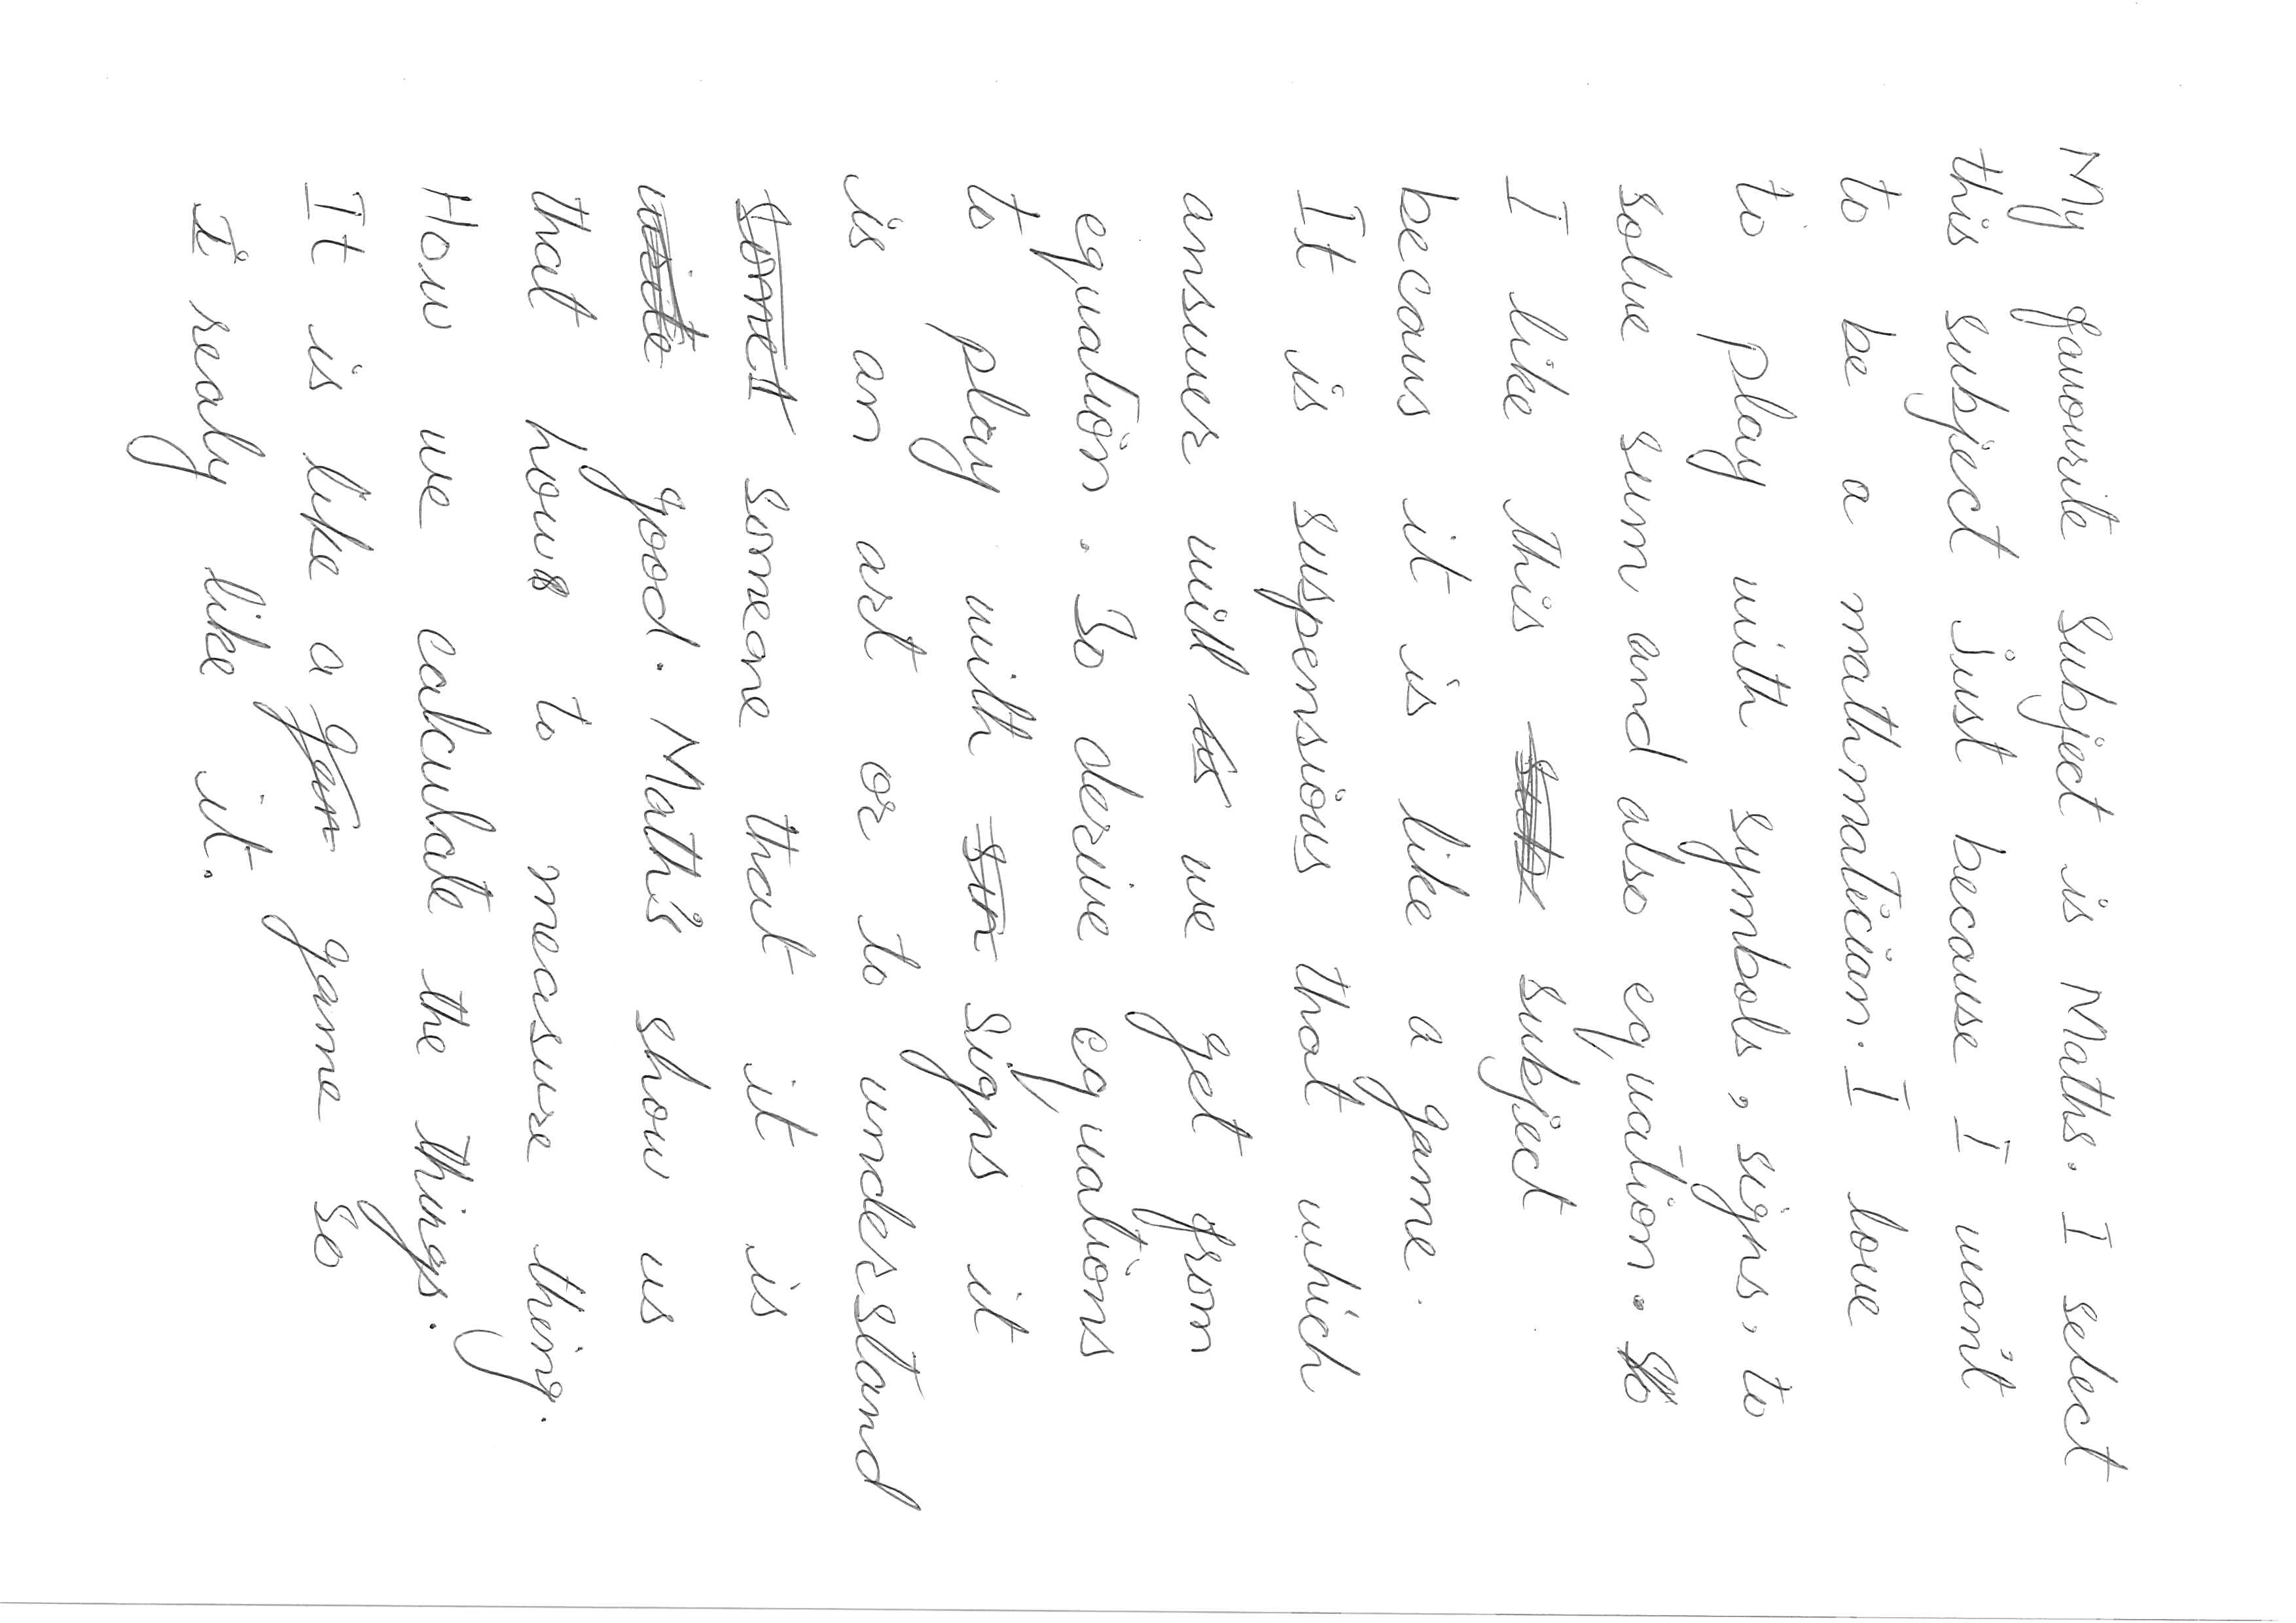 My favourite Subject is Maths. I select
this subject Just because I wan't
to be a mathmatician. I love
to play with symbols, signs, to
solve sum and also equation. So
I like this sub subject
becaus it is like a game.
It is suspensious that which
answer will we get from
equation. So derive equations
to play with sin signs it
is an art or to understand
somet someone that it is
write good. Math's show us
that how to measure thing.
How we calculate the things.
It is like a gam game so
I realy like it.